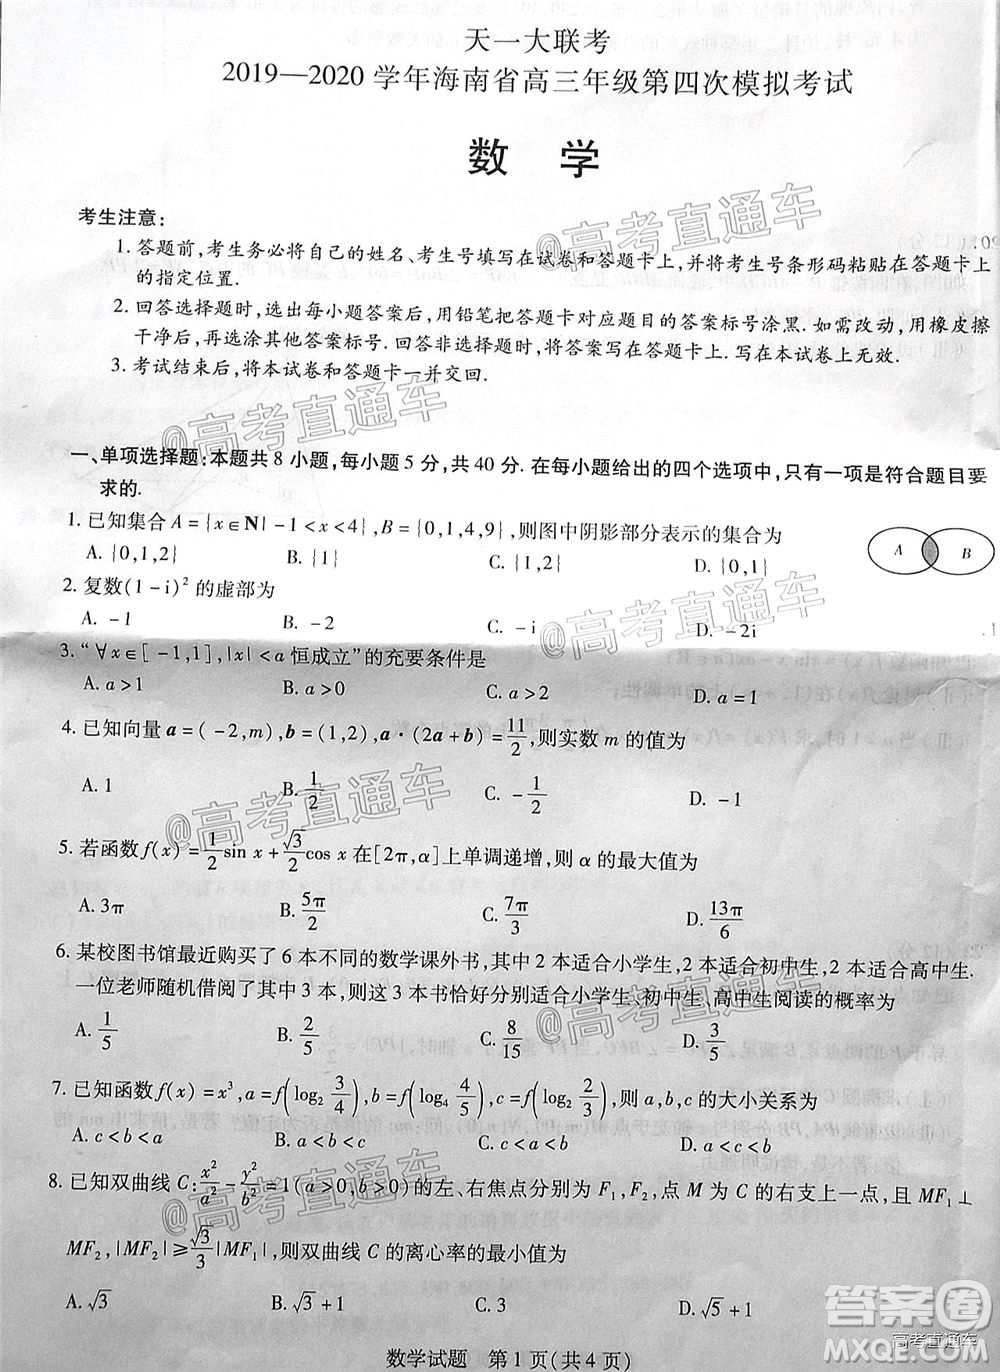 天一大联考
2019—2020 学年海南省高三年级第四次模拟考试
数 学
考生注意:
1. 答题前,考生务必将自己的姓名、考生号填写在试卷和答题卡上,并将考生号条形码粘贴在答题卡上
的指定位置.
2. 回答选择题时,选出每小题答案后,用铅笔把答题卡对应题目的答案标号涂黑. 如需改动,用橡皮擦
干净后,再选涂其他答案标号. 回答非选择题时,将答案写在答题卡上. 写在本试卷上无效.
3. 考试结束后,将本试卷和答题卡一并交回.
@高考直通车
@高考直通车
一、单项选择题:本题共 8 小题,每小题 5 分,共 40 分. 在每小题给出的四个选项中,只有一项是符合题目要
求的.
1. 已知集合 A={x∈N|-1<x<4},B={0,1,4,9},则图中阴影部分表示的集合为
A. {0,1,2} B. {1} C. {1,2} D. {0,1}
A B
2. 复数(1-i)² 的虚部为
A. -1 B. -2 C. -i D. -2i
@高考直通车
3. “∀x∈[-1,1],|x|<a 恒成立”的充要条件是
A. a>1 B. a>0 C. a>2 D. a=1
4. 已知向量 a=(-2,m),b=(1,2),a·(2a+b)=11/2,则实数 m 的值为
A. 1 B. 1/2 C. -1/2 D. -1
@高考直通车
5. 若函数 f(x)=1/2 sin x+√3/2 cos x 在[2π,α]上单调递增,则 α 的最大值为
A. 3π B. 5π/2 C. 7π/3 D. 13π/6
6. 某校图书馆最近购买了 6 本不同的数学课外书,其中 2 本适合小学生,2 本适合初中生,2 本适合高中生.
一位老师随机借阅了其中 3 本,则这 3 本书恰好分别适合小学生、初中生、高中生阅读的概率为
A. 1/5 B. 2/5 C. 8/15 D. 3/5
@高考直通车
7. 已知函数 f(x)=x³,a=f(log₂ 3/4),b=f(log₄ 4/5),c=f(log₂ 5/4),则 a,b,c 的大小关系为
A. c<b<a B. c<a<b C. b<a<c D. a<b<c
8. 已知双曲线 C:x²/a²-y²/b²=1(a>0,b>0)的左、右焦点分别为 F₁,F₂,点 M 为 C 的右支上一点,且 MF₁⊥
MF₂,|MF₂|≥√3/3|MF₁|,则双曲线 C 的离心率的最小值为
A. √3 B. √3+1 C. 3 D. √5+1
@高考直通车
数学试题 第 1 页(共 4 页)
答案圈
MXQE.COM
高考直通车